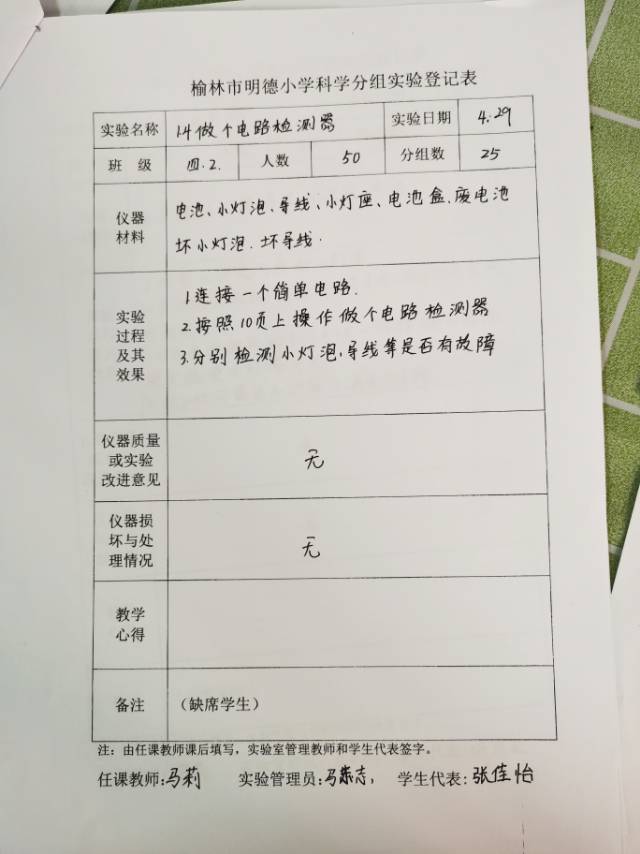 榆林市明德小学科学分组实验登记表
实验名称 14做个电路检测器 实验日期 4.29
班 级 四.2. 人数 50 分组数 25
仪器材料 电池、小灯泡、导线、小灯座、电池盒、废电池
坏小灯泡. 坏导线.
实验过程及其效果 1.连接一个简单电路.
2.按照10页上操作做个电路检测器
3.分别检测小灯泡、导线等是否有故障
仪器质量或实验改进意见 无
仪器损坏与处理情况 无
教学心得
备注 (缺席学生)
注：由任课教师课后填写，实验室管理教师和学生代表签字。
任课教师:马莉 实验管理员: 学生代表:张佳怡